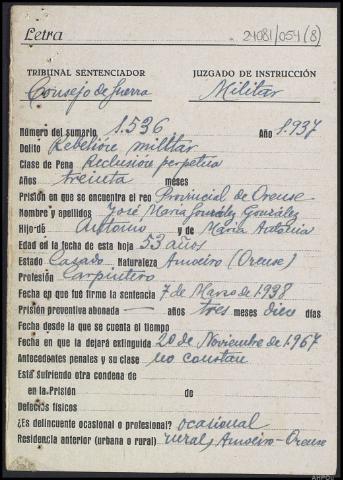 Letra 24081/054(8)
TRIBUNAL SENTENCIADOR JUZGADO DE INSTRUCCIÓN
Consejo de Guerra Militar
Número del sumario 1.536 Año 1.937
Delito Rebelión militar
Clase de Pena Reclusión perpetua
Años treinta meses
Prisión en que se encuentra el reo Provincial de Orense
Nombre y apellidos José María González González
Hijo de Antonio y de María Antonia
Edad en la fecha de esta hoja 53 años
Estado Casado Naturaleza Amoeiro (Orense)
Profesión Carpintero
Fecha en que fué firme la sentencia 7 de Marzo de 1938
Prisión preventiva abonada — años tres meses diez días
Fecha desde la que se cuenta el tiempo
Fecha en que la dejará extinguida 20 de Noviembre de 1.967
Antecedentes penales y su clase no constan
Está sufriendo otra condena de
en la Prisión de
Defectos físicos
¿Es delincuente ocasional o profesional? ocasional
Residencia anterior (urbana o rural) rural, Amoeiro-Orense
AHPOu